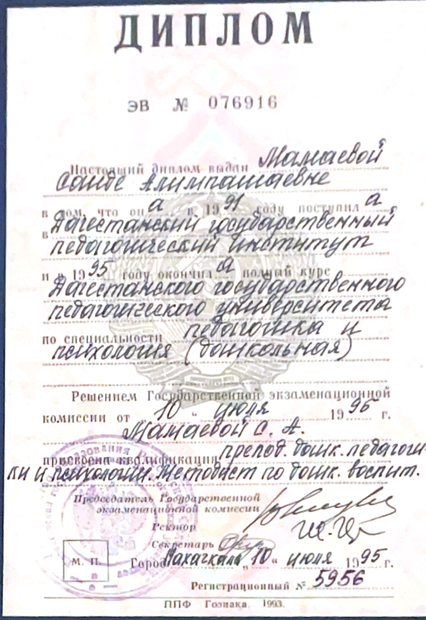 ДИПЛОМ
ЭВ № 076916
Настоящий диплом выдан Мамаевой
Саиде Алимпашаевне
в том, что она в 1991 году поступила
в Дагестанский государственный
педагогический институт
и в 1995 году окончила полный курс
Дагестанского государственного
педагогического университета
по специальности педагогика и
психология (дошкольная)
Решением Государственной экзаменационной
комиссии от 10 „ июля 1995 г.
Мамаевой С. А.
присвоена квалификация препод. дошк. педагоги-
ки и психологии. Методист по дошк. воспит.
Председатель Государственной
экзаменационной комиссии
Ректор
Секретарь
М. П.
Город Махачкала „ 10 „ июля 1995 г.
Регистрационный № 5956
ППФ Гознака. 1993.